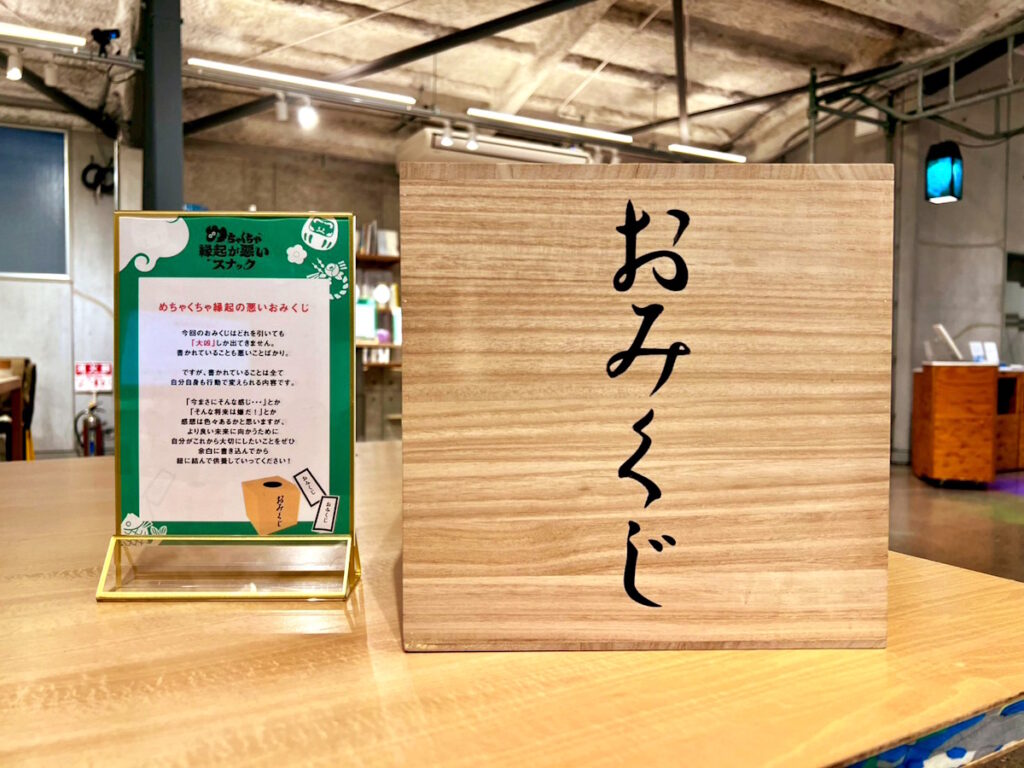 めちゃくちゃ
縁起が悪い
スナック
めちゃくちゃ縁起の悪いおみくじ
今回のおみくじはどれを引いても
「大凶」しか出てきません。
書かれていることも悪いことばかり。
ですが、書かれていることは全て
自分自身も行動で変えられる内容です。
「今まさにそんな感じ・・・」とか
「そんな将来は嫌だ！」とか
感想は色々あるかと思いますが、
より良い未来に向かうために
自分がこれから大切にしたいことをぜひ
余白に書き込んでから
紐に結んで供養していってください！
おみくじ
おみくじ
おみくじ
おみくじ
消火器